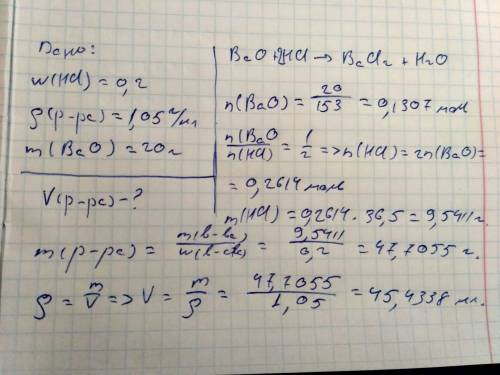 Дано:
w(HCl) = 0,2
ρ(р-ра) = 1,05 г/мл
m(BaO) = 20г
V(р-ра) - ?
BaO + 2HCl → BaCl2 + H2O
n(BaO) = 20/153 = 0,1307 моль
n(BaO/n(HCl) = 1/2 => n(HCl) = 2n(BaO) =
= 0,2614 моль
m(HCl) = 0,2614 · 36,5 = 9,5411 г.
m(р-ра) = m(в-ва)/w(в-ва) = 9,5411/0,2 = 47,7055 г.
ρ = m/V => V = m/ρ = 47,7055/1,05 = 45,4338 мл.